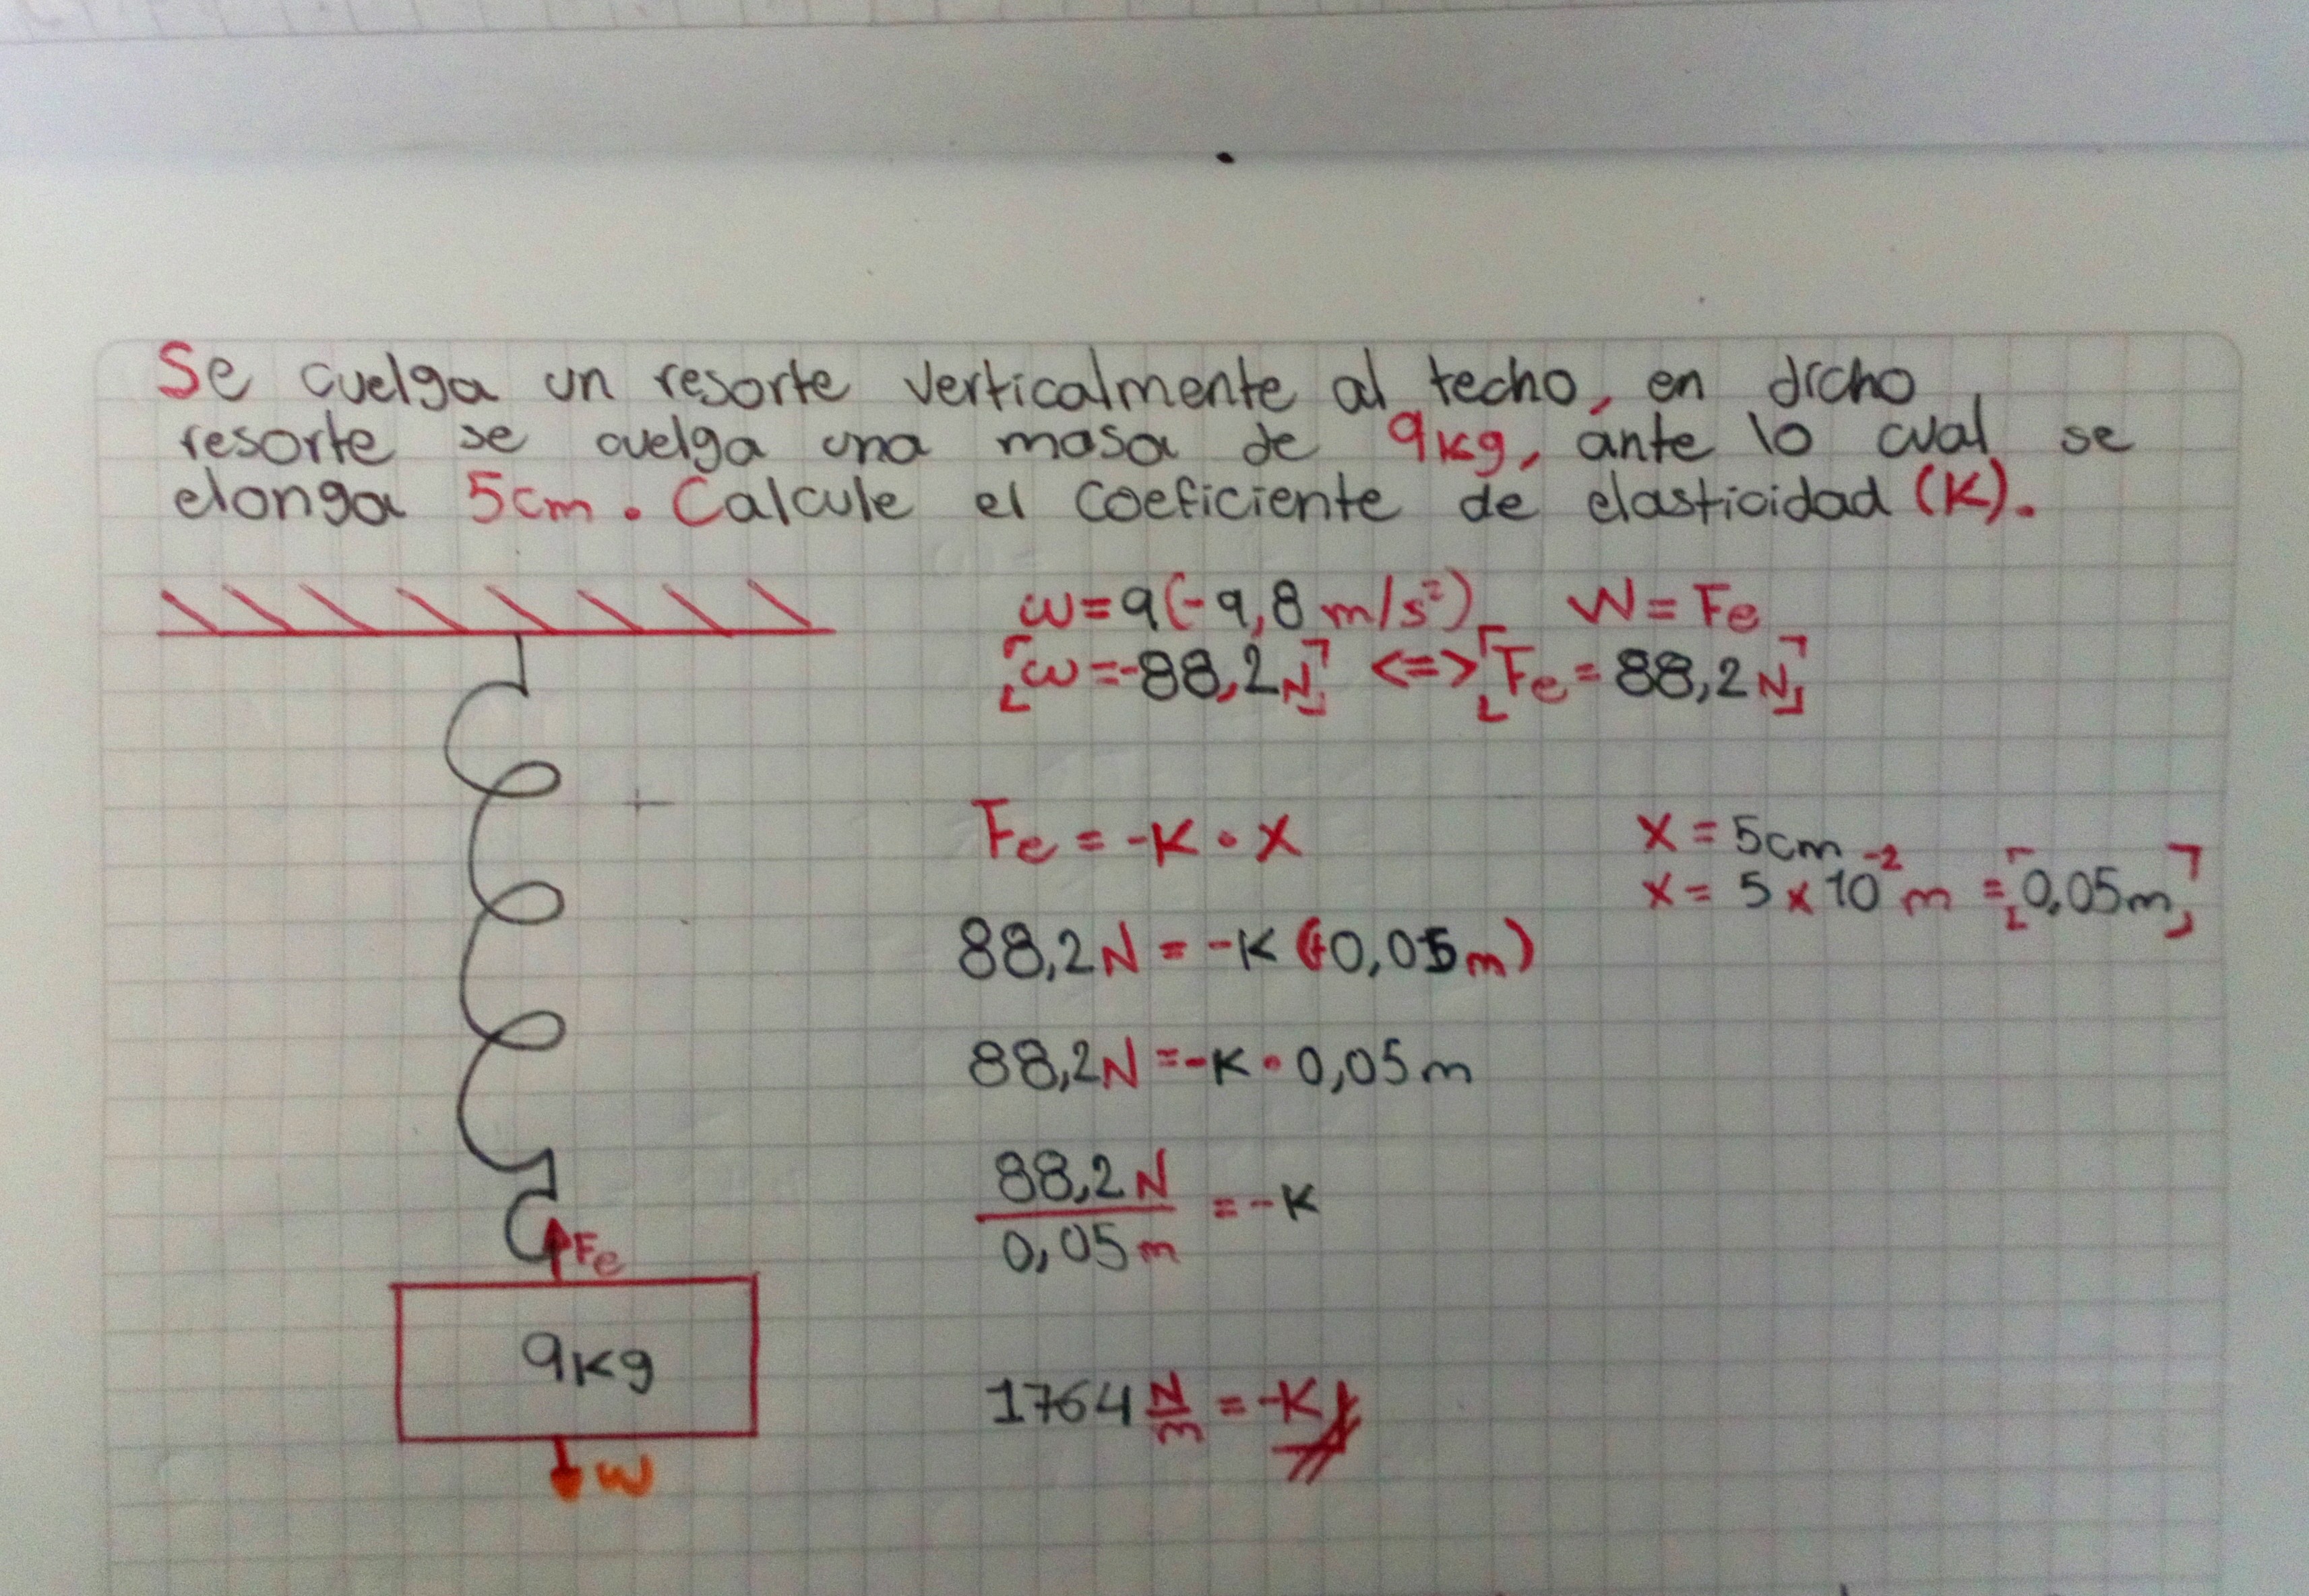 Se cuelga un resorte verticalmente al techo, en dicho
resorte se cuelga una masa de 9kg, ante lo cual se
elonga 5cm. Calcule el coeficiente de elasticidad (K).
ω=9(-9,8 m/s²) W=Fe
[ω=-88,2N] <=> [Fe=88,2N]
Fe = -K • X
X = 5cm
X = 5 x 10⁻² m = [0,05m]
88,2N = -K (+0,05m)
88,2N =-K • 0,05m
88,2N
0,05m
= -K
Fe
9kg
1764 N/m = -K
ω